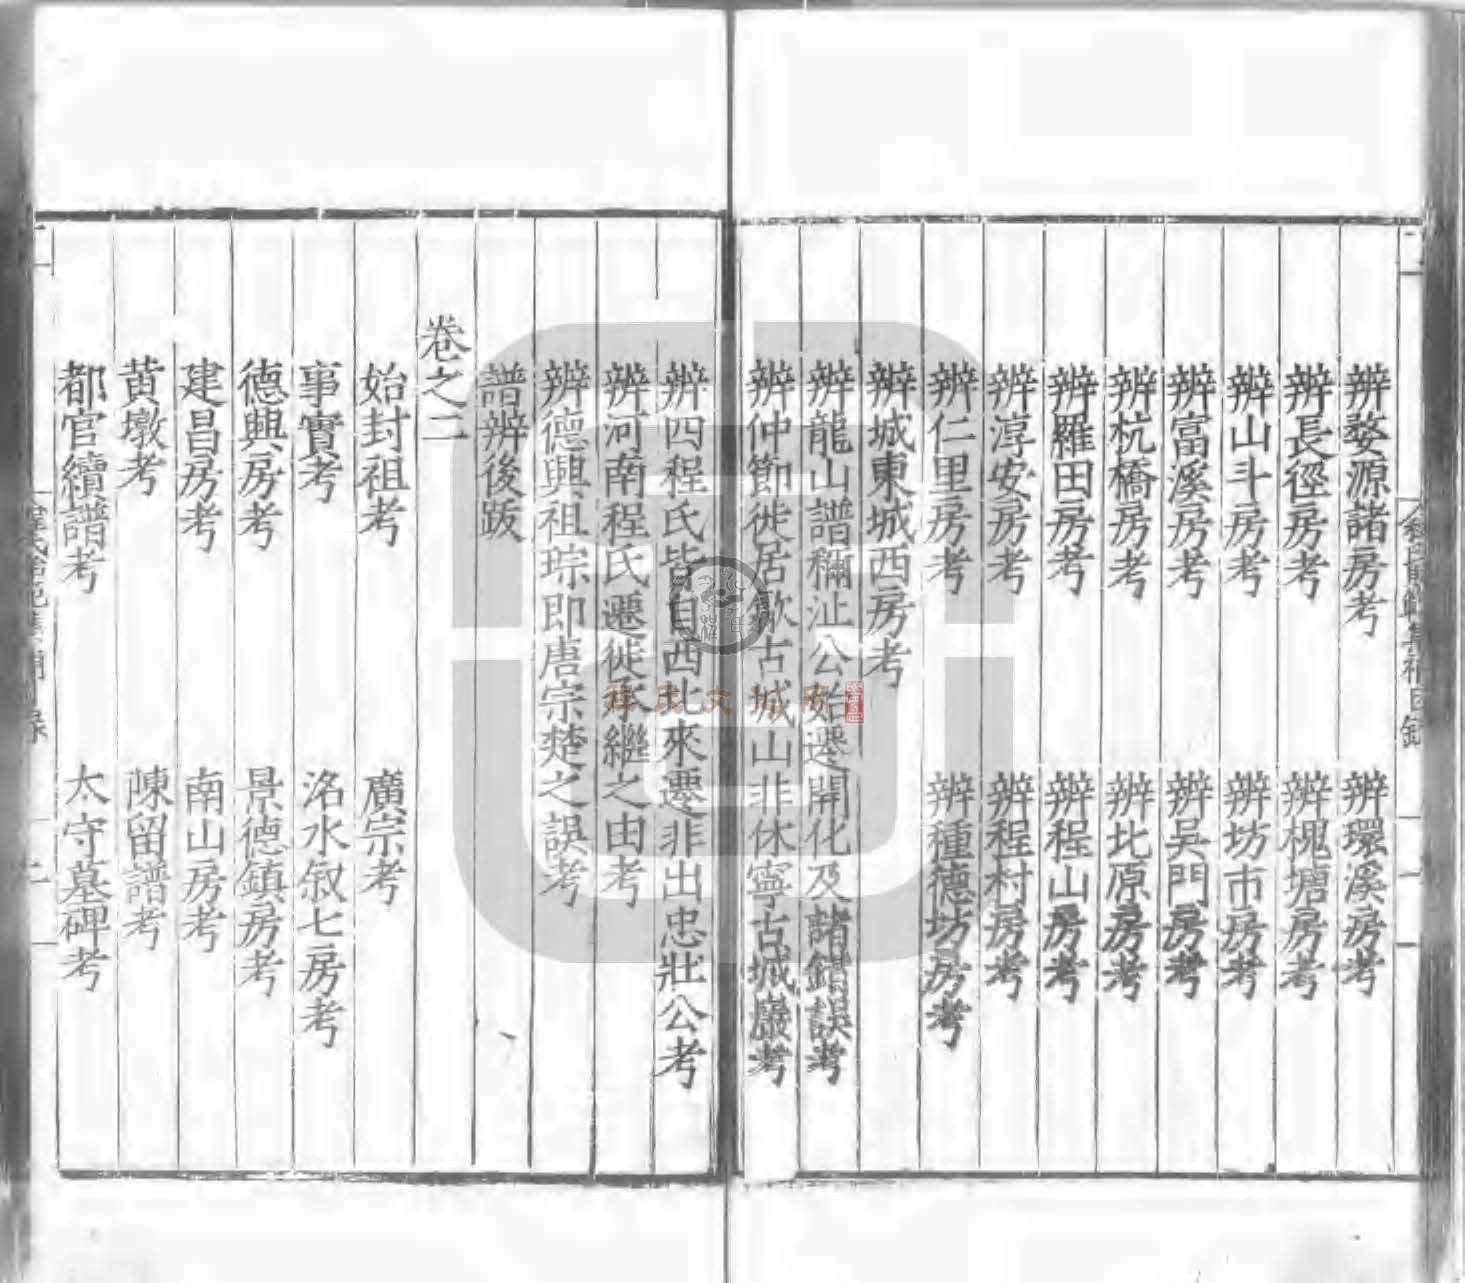 辨婺源諸房考　辨環溪房考
辨長徑房考　辨槐塘房考
辨山斗房考　辨坊市房考
辨富溪房考　辨吳門房考
辨杭橋房考　辨北原房考
辨羅田房考　辨程山房考
辨淳安房考　辨程村房考
辨仁里房考　辨種德坊房考
辨城東城西房考
辨龍山譜稱沚公始遷開化及諸錯誤考
辨仲節徙居歙古城山非休寧古城巖考
辨四程氏皆自西北來遷非出忠壯公考
辨河南程氏遷徙承繼之由考
辨德興祖琮即唐宗楚之誤考
譜辨後跋
卷之二
始封祖考　廣宗考
事實考　洺水敘七房考
德興房考　景德鎮房考
建昌房考　南山房考
黃墩考　陳留譜考
都官續譜考　太守墓碑考